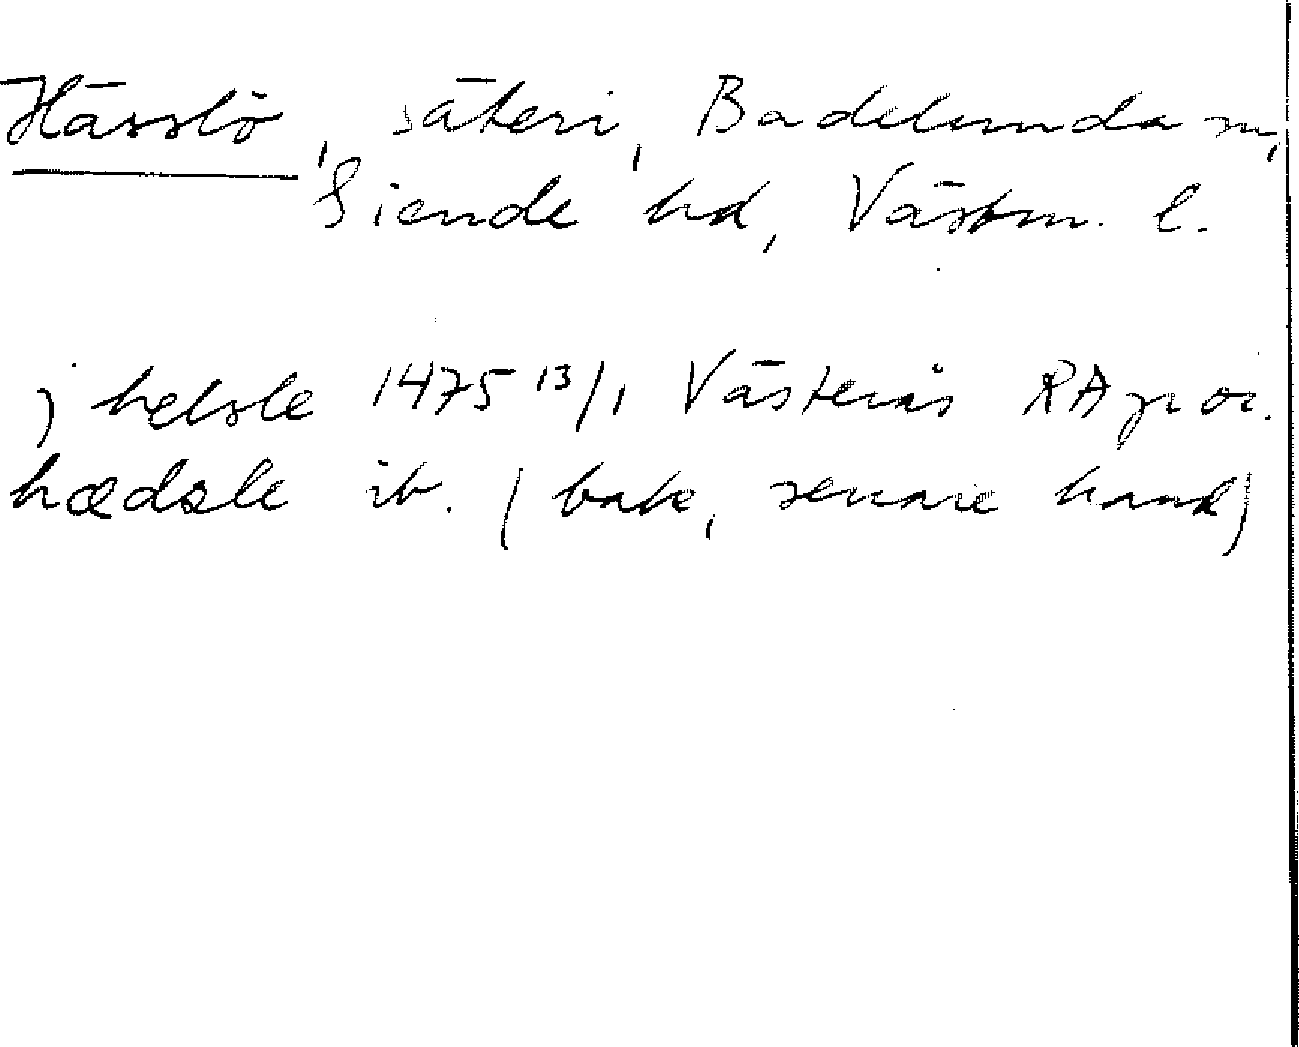 Hässlö, säteri, Badelunda sn,
Siende hd, Västm. l.
j helsle 1475 13/1 Västerås RA p or.
hædzle ib. (bak, senare hand)